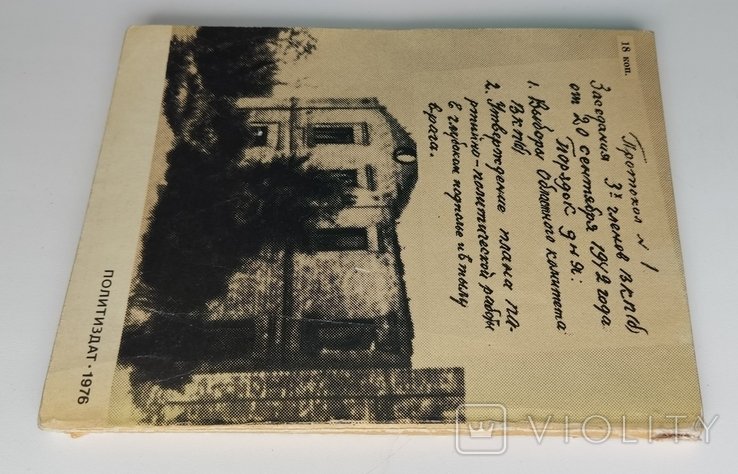 18 коп.
Протокол N 1
Заседания 3х членов ВКП(б)
от 20 сентября 1942 года
Порядок дня:
1. Выборы Областного комитета
ВКП(б)
2. Утверждение плана па-
ртийно-политической работы
в глубоком подполье и в тылу
врага.
ПОЛИТИЗДАТ · 1976
VIOLITY